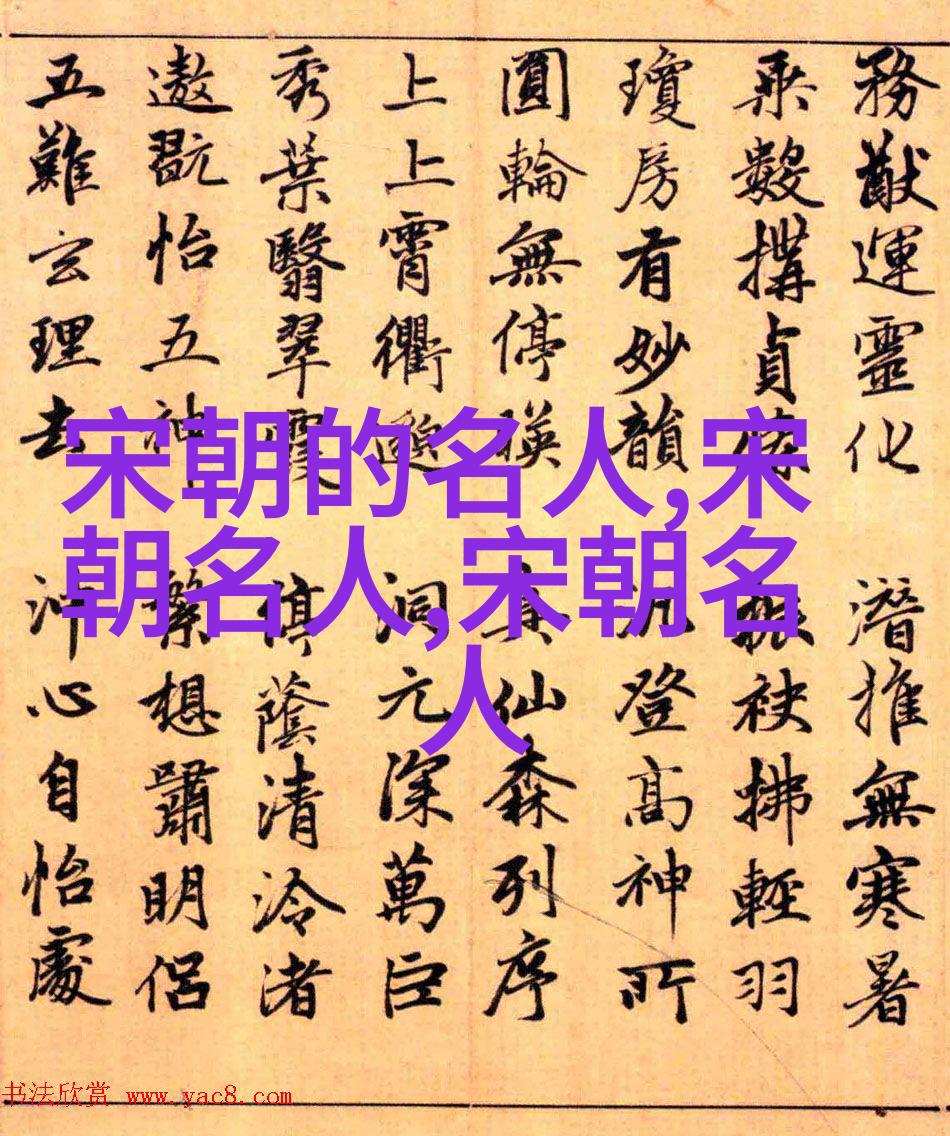 務猷運靈化 潛推無寒暑
乘數構貞條 振袂拂輕羽
瓊房有妙韻 汎登高神所
圓輪無停暎 真仙森列序
上上霄衢邈 洞元深萬臣
秀葉翳翠霞 停蔭清泠渚
遨翫怡五神 縈想嘯明侶
五難玄理去 沖心自怡處
宋朝的名人,宋
朝名人,宋朝名
人
书法欣赏 www.yac8.com